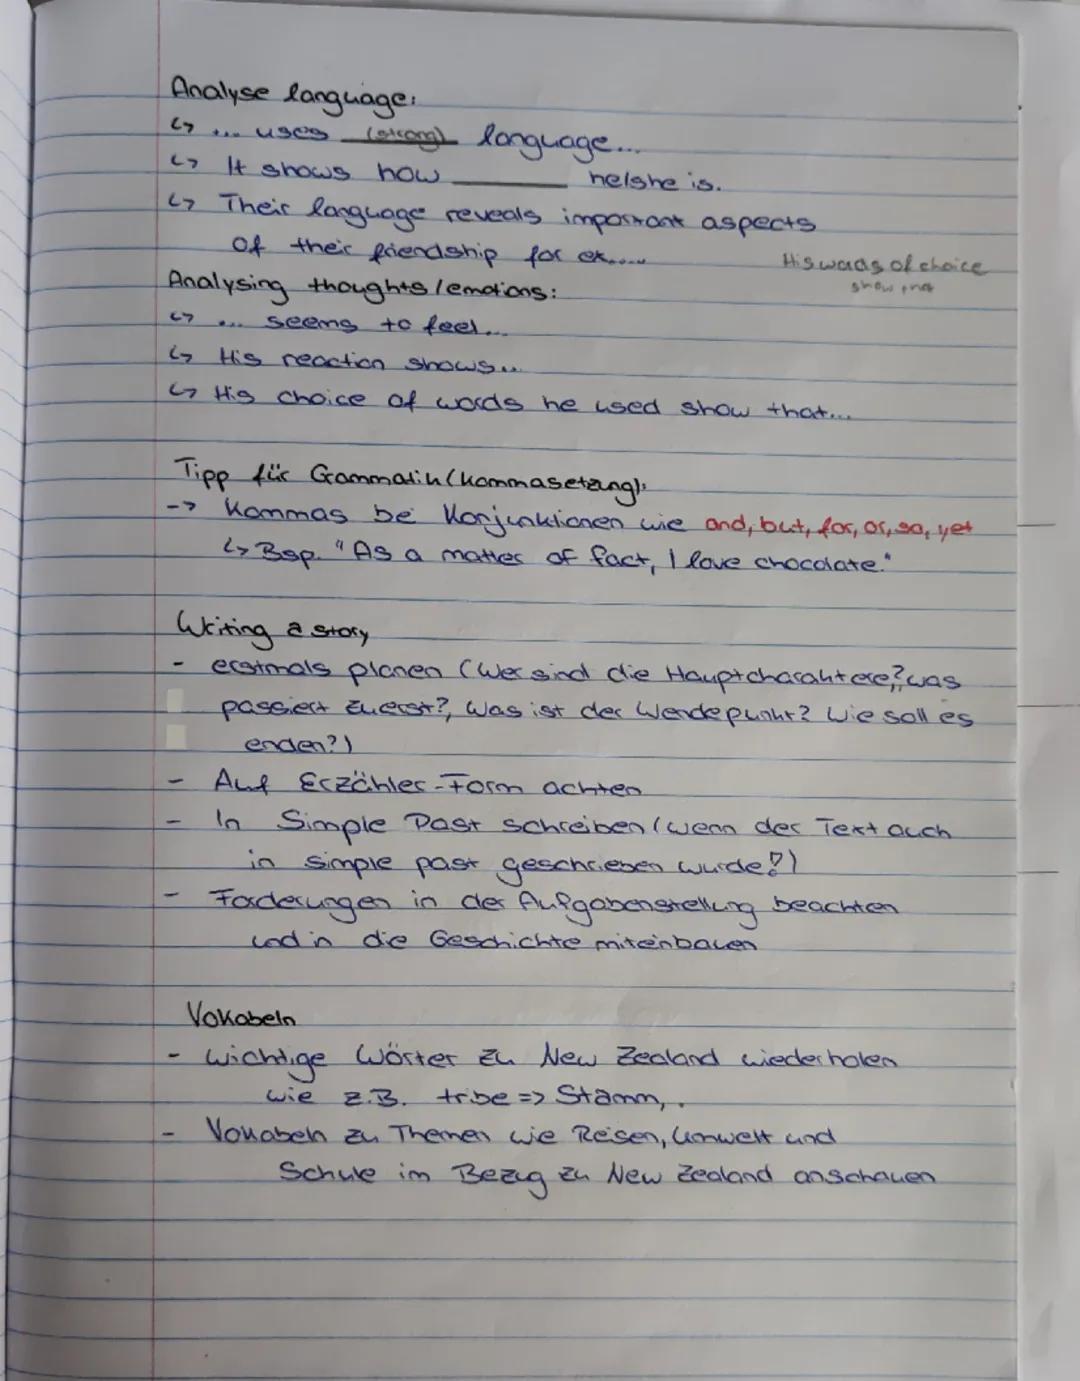 Analyse language:
↳ ... uses (strong) language...
↳ It shows how ______ he/she is.
↳ Their language reveals important aspects
of their friendship for ex.....
His words of choice
show that
Analysing thoughts/emotions:
↳ ... seems to feel...
↳ His reaction shows...
↳ His choice of words he used show that...
Tipp für Grammatik (Kommasetzung):
-> Kommas be Konjunktionen wie and, but, for, or, so, yet
↳ Bsp. "As a matter of fact, I love chocolate."
Writing a story
- erstmals planen (Wer sind die Hauptcharaktere?, was
passiert zuerst?, Was ist der Wendepunkt? Wie soll es
enden?)
- Auf Erzähler-Form achten
- In Simple Past schreiben (wenn der Text auch
in simple past geschrieben wurde!?)
- Forderungen in der Aufgabenstellung beachten
und in die Geschichte miteinbauen
Vokabeln
- wichtige Wörter zu New Zealand wiederholen
wie z.B. tribe => Stamm, .
- Vokabeln zu Themen wie Reisen, Umwelt und
Schule im Bezug zu New Zealand anschauen